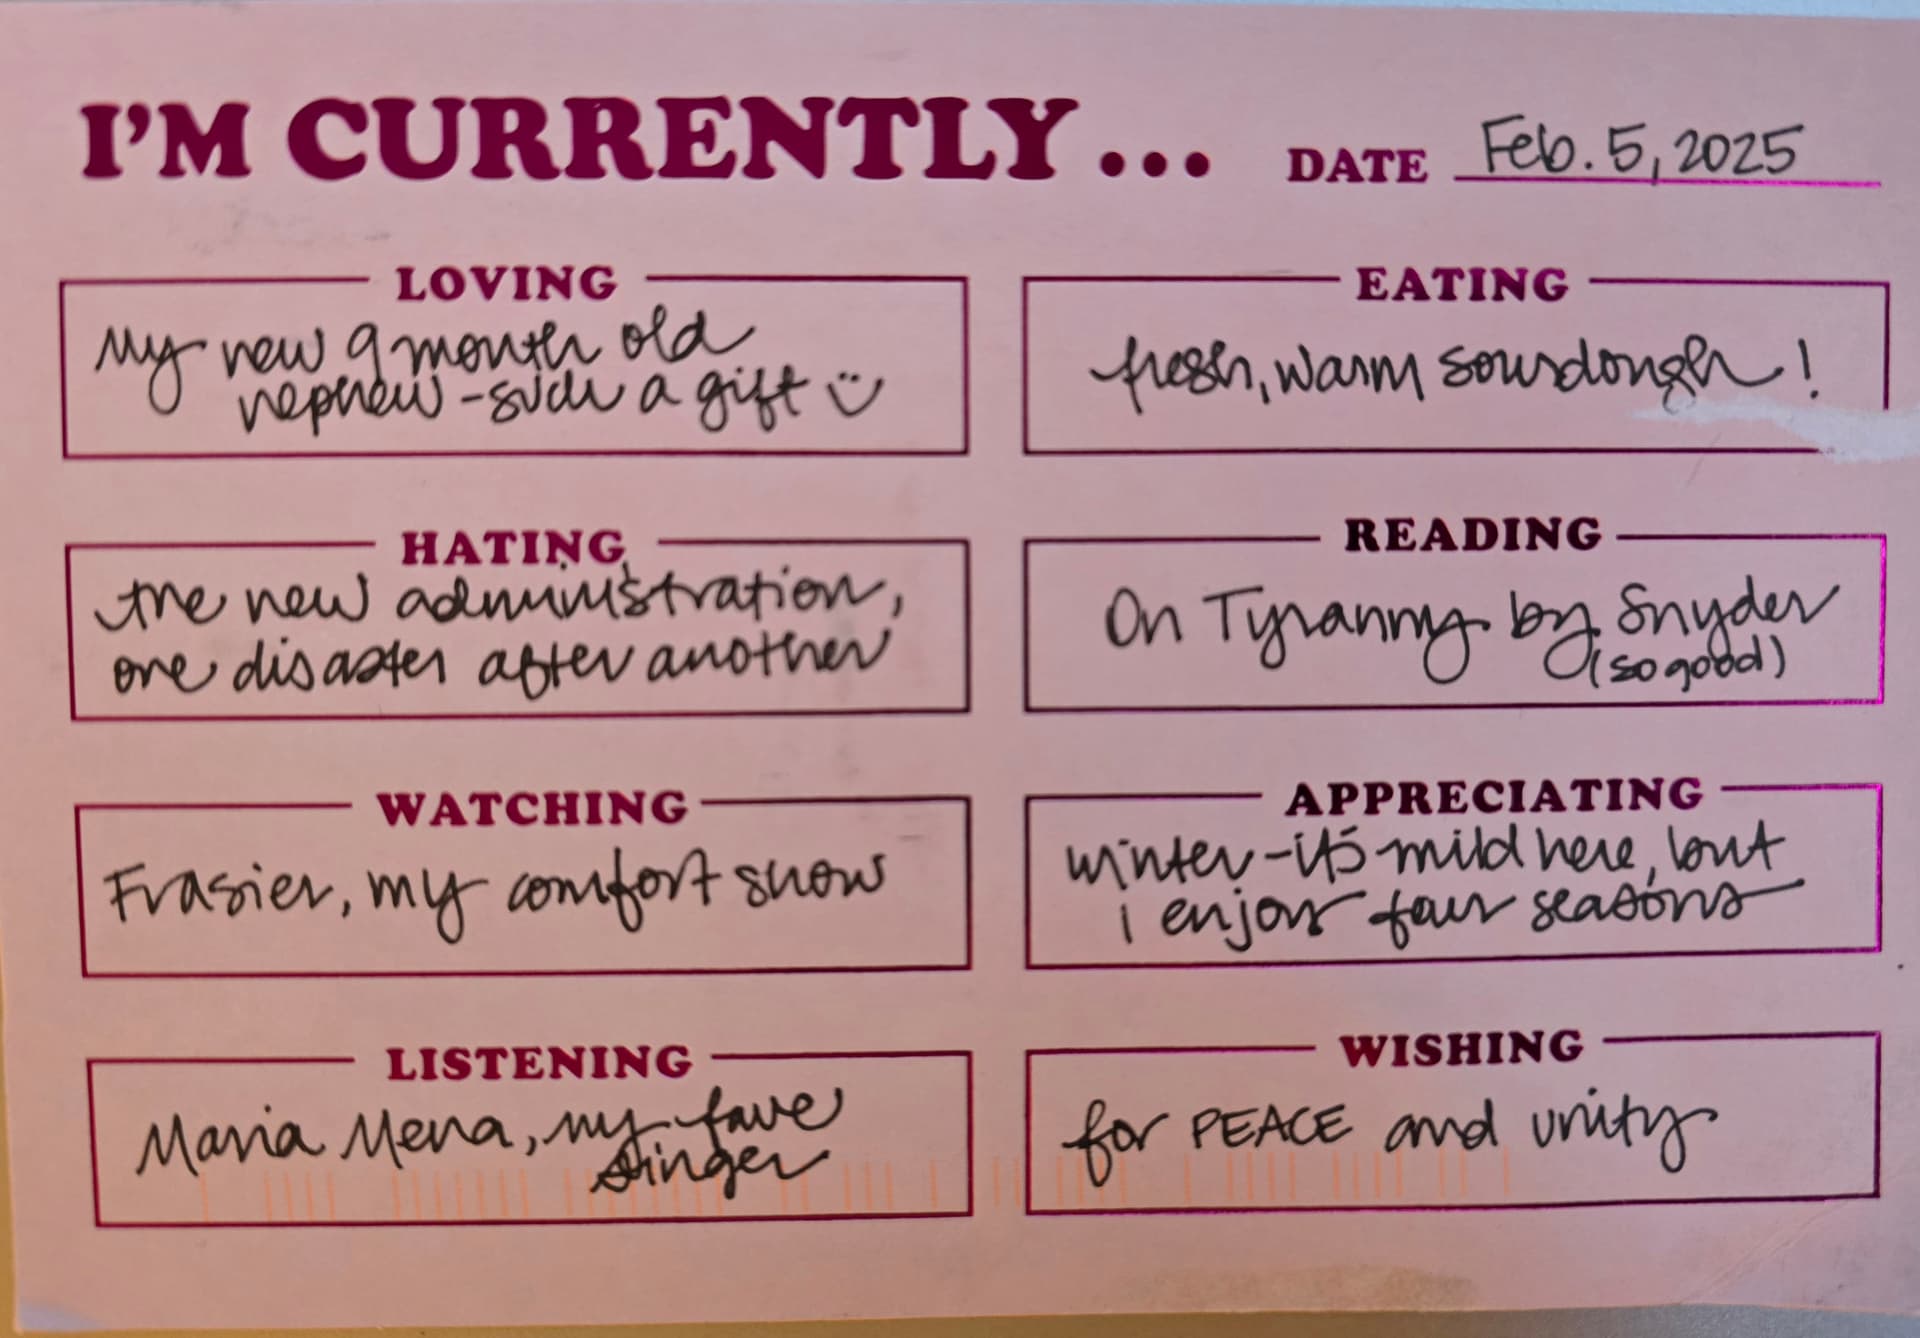 I'M CURRENTLY...
DATE Feb. 5, 2025
LOVING
My new 9 month old
nephew - such a gift
EATING
fresh, warm sourdough!
HATING
the new administration,
one disaster after another
READING
On Tyranny by Snyder
(so good)
WATCHING
Frasier, my comfort show
APPRECIATING
winter - it's mild here, but
i enjoy four seasons
LISTENING
Maria Mena, my fave
singer
WISHING
for PEACE and unity